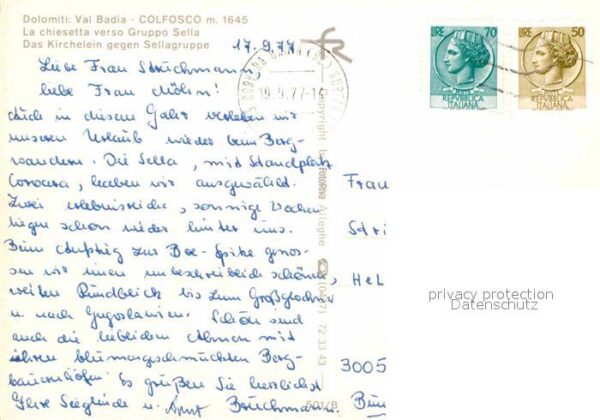 Dolomiti: Val Badia - COLFOSCO m. 1645
La chiesetta verso Gruppo Sella
Das Kirchelein gegen Sellagruppe
17.9.77
LIRE 70
POSTE
REPVBBLICA
ITALIANA
LIRE 50
REPVBBLICA
ITALIANA
19.9.77-14
Liebe Frau
liebe Frau
Auch in diesem Jahr verleben wir
unseren Urlaub wieder beim Berg-
wandern. Die Sella, mit Standplatz
Corvara, haben wir ausgewählt.
Zwei erlebnisreiche, sonnige Wochen
liegen schon wieder hinter uns.
Beim Aufstieg zur Boe-Spitze genos-
sen wir einen unbeschreiblich schönen,
weiten Rundblick bis zum Großglockner
u nach Jugoslawien. Schön sind
auch die lieblichen Almen mit
ihren blumengeschmückten Berg-
bauernhöfen. Es grüßen Sie herzlichst
Ihre Sieglinde u. Bruchmann.
Copyright by
Alleghe
72 33 43
501/B
Frau
Hel
3005
privacy protection
Datenschutz